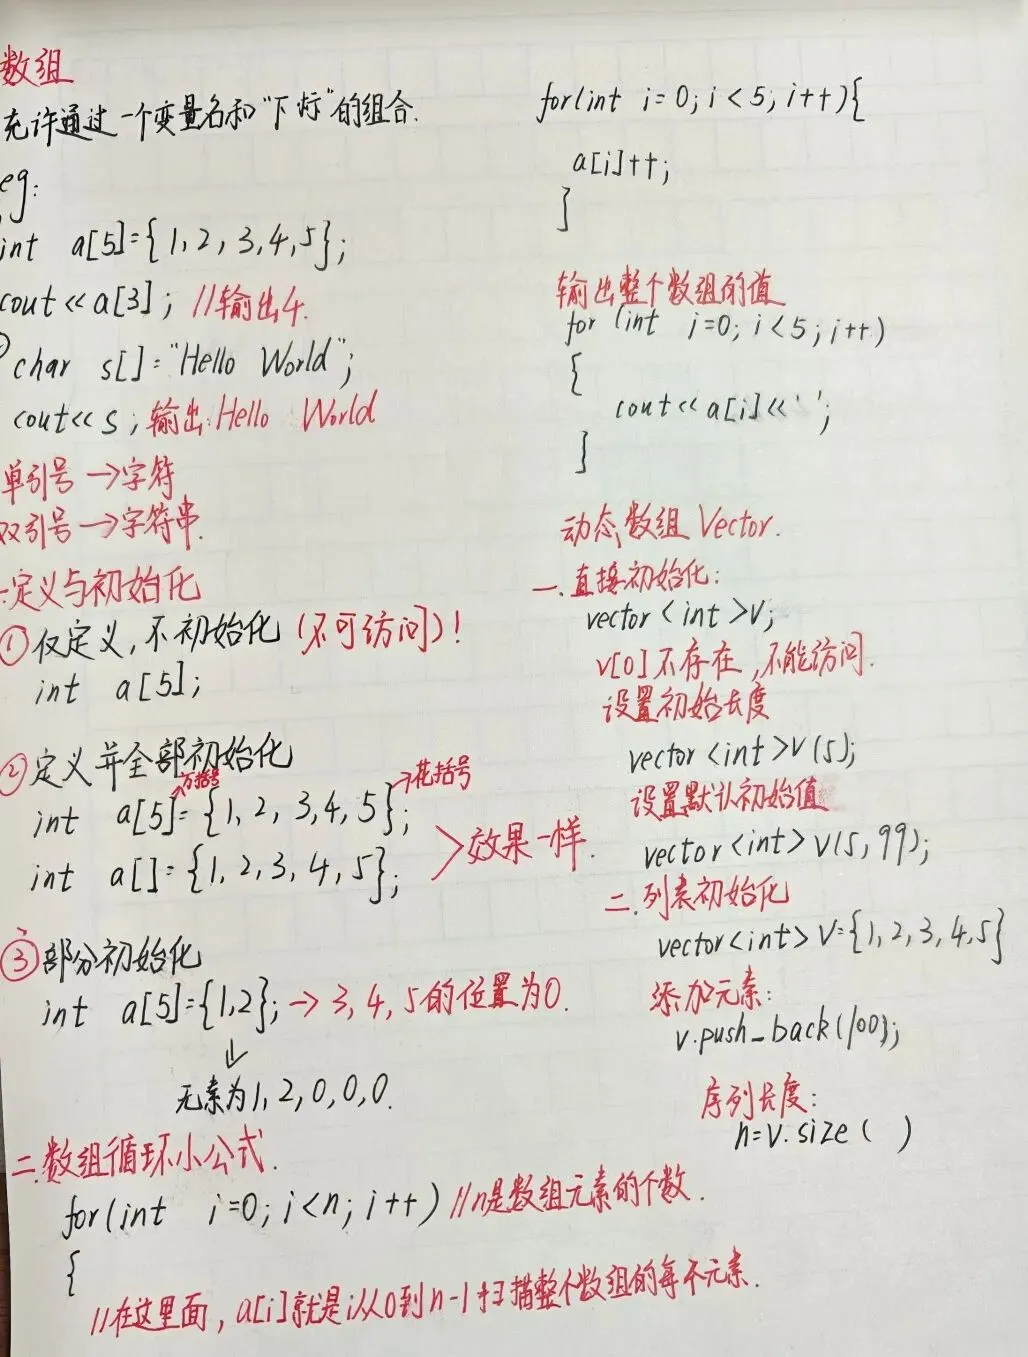 数组
允许通过一个变量名和"下标"的组合.
eg:
int a[5]={1,2,3,4,5};
cout<<a[3]; //输出4.
char s[]="Hello World";
cout<<s; 输出:Hello World
单引号→字符
双引号→字符串.
一.定义与初始化
①仅定义,不初始化(不可访问)!
int a[5];
②定义并全部初始化
→方括号 →花括号
int a[5]={1,2,3,4,5};
int a[]={1,2,3,4,5};
>效果一样.
③部分初始化
int a[5]={1,2};→3,4,5的位置为0.
↓
元素为1,2,0,0,0.
二.数组循环小公式.
for(int i=0;i<n;i++) //n是数组元素的个数.
{
//在这里面,a[i]就是i从0到n-1扫描整个数组的每个元素.
for(int i=0;i<5;i++){
a[i]++;
}
输出整个数组的值
for(int i=0;i<5;i++)
{
cout<<a[i]<<' ';
}
动态数组Vector.
一.直接初始化:
vector<int>v;
v[0]不存在,不能访问.
设置初始长度
vector<int>v(5);
设置默认初始值
vector<int>v(5,99);
二.列表初始化
vector<int>v={1,2,3,4,5}
添加元素:
v.push_back(100);
序列长度:
n=v.size( )